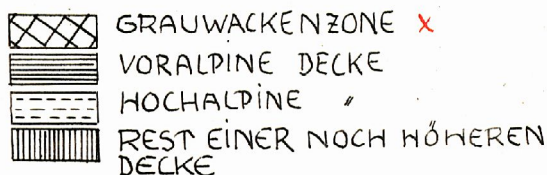 GRAUWACKENZONE x
VORALPINE DECKE
HOCHALPINE "
REST EINER NOCH HÖHEREN
DECKE